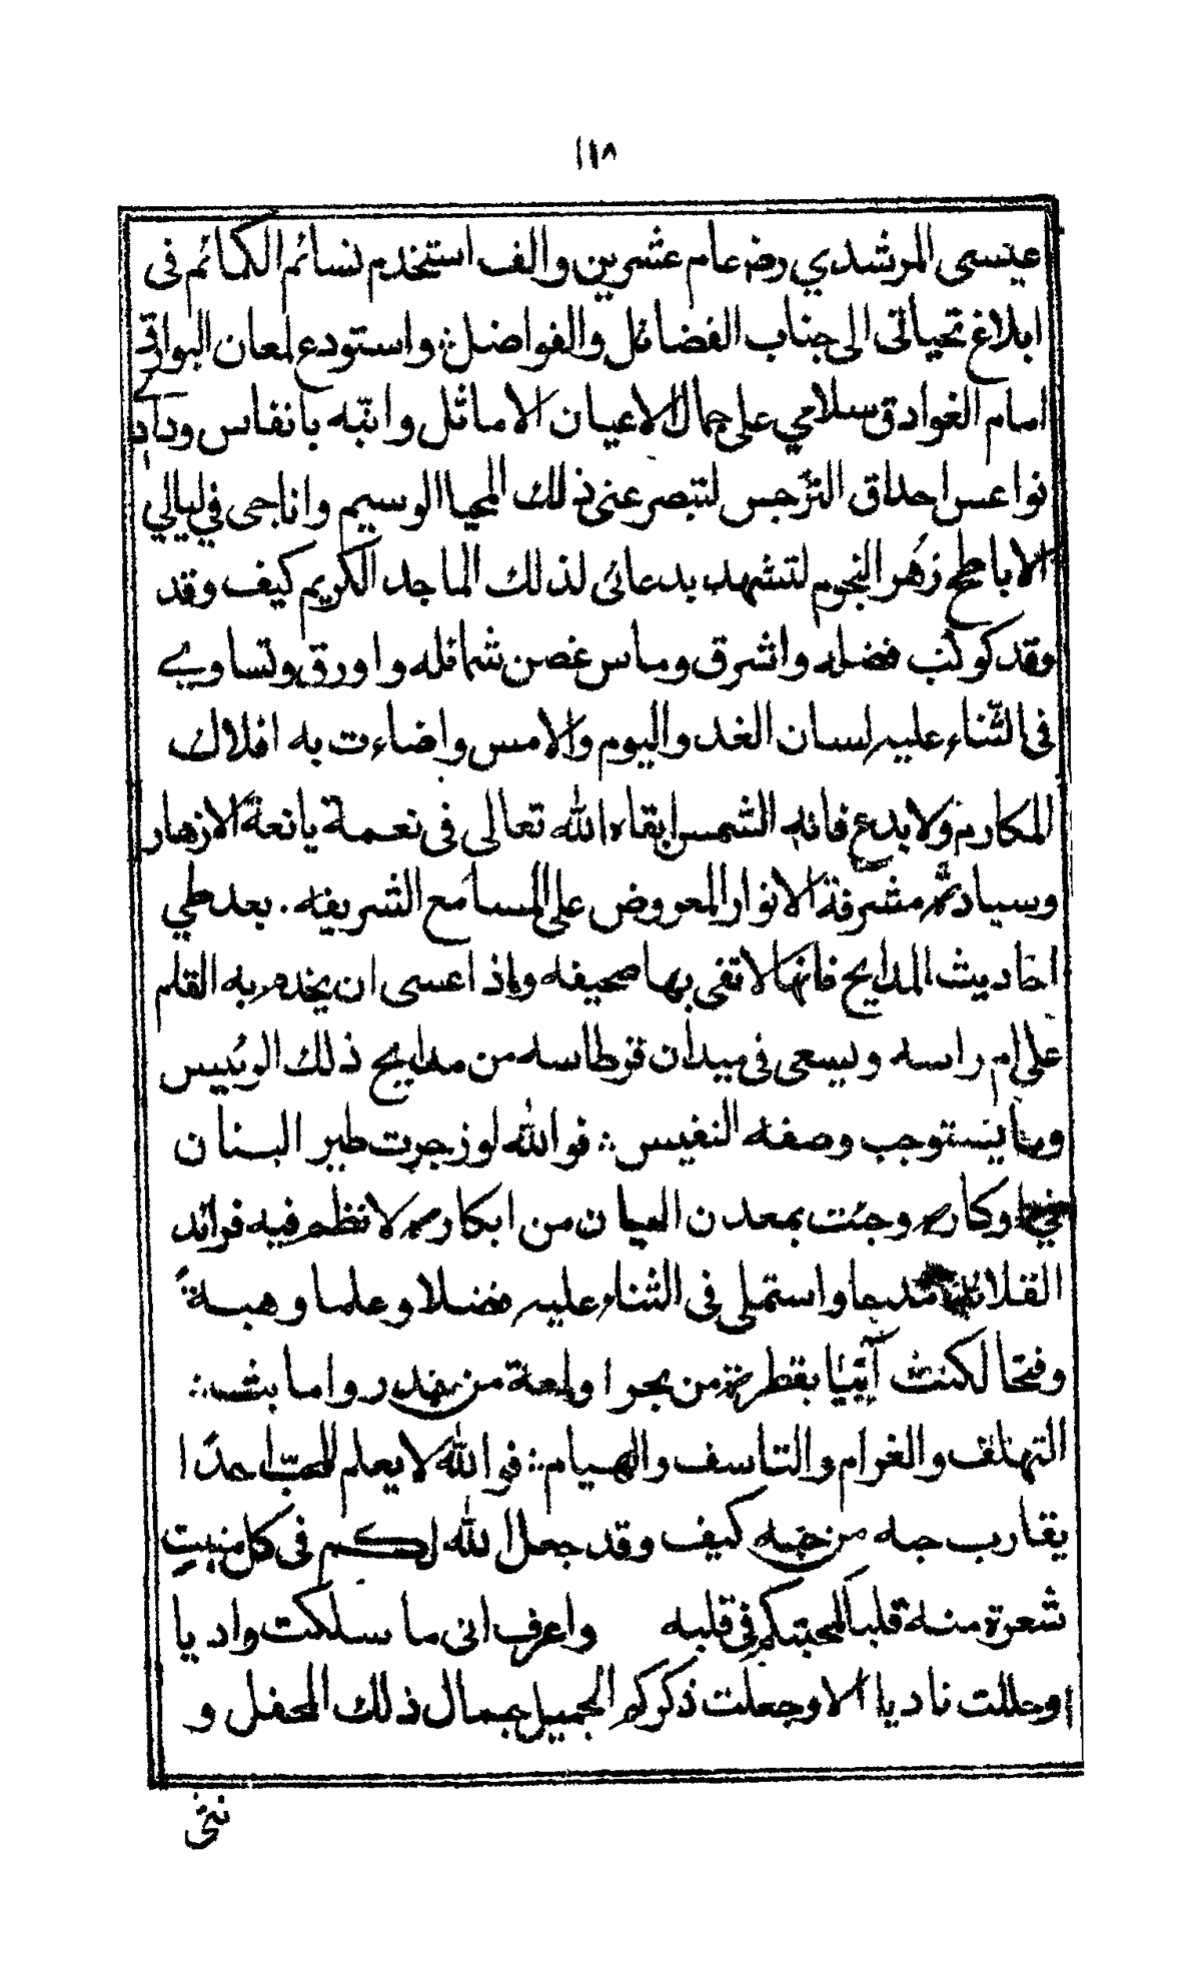 ١١٨
عيسى المرشدي رضه عام عشرين والف استخدم نسائم الكمائم فى
ابلاغ تحياتى الى جناب الفضائل والفواضل واستودع لمعان البوارق
امام الغوادق سلامي على جمال الاعيان الاماثل وانبّه بانفاس ودادى
نواعس احداق النرجس لتبصر عنى ذلك المحيا الوسيم واناجى في ليالي
الاباطح زهر النجوم لتشهد بدعائى لذلك الماجد الكريم كيف وقد
وقد كوكب فضله واشرق وماس غصن شمائله واورق وتساوى
فى الثّناء عليه لسان الغد واليوم والامس واضاءت به افلاك
المكارم ولا بدع فانه الشمس ابقاه الله تعالى فى نعمة يانعة الازهار
وسيادة مشرقة الانوار المعروض على المسامع الشريفه . بعد طي
احاديث المدايح فانها لا تفى بها صحيفه واذا عسى ان يخدم به القلم
على ام راسه ويسعى فى ميدان قرطاسه من مدايح ذلك الرئيس
وما يستوجب وصفه النفيس ؛ فوالله لو زجرت طير البنان
اوكاره وجئت بمعدن البيان من ابكاره لانظم فيه فرائد
القلائد مدحا واستملى فى الثناء عليه فضلا وعلما وهبةً
وفتحا لكنت آتيا بقطرة من بحر اولمعة من بدر واما بث
التهلف والغرام والتاسف والهيام ؛ فوالله لا يعلم المحبّ احدًا
يقارب حبه من حبه كيف وقد جعل الله لكم فى كل منبت
شعرة منه قلبا لمحبتكم فى قلبه واعرف انى ما سلكت واديا
وحللت ناديا الا وجعلت ذكركم الجميل جمال ذلك المحفل و